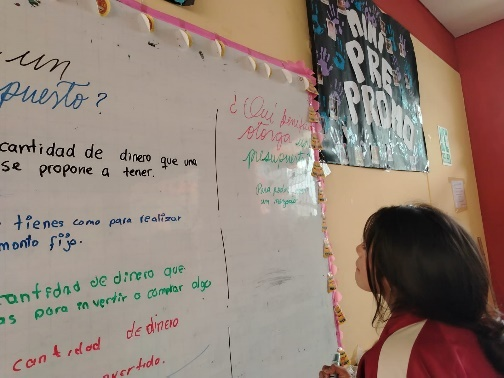 un
puesto?
cantidad de dinero que una
se propone a tener.
tienes como para realizar
monto fijo.
cantidad de dinero que
as para invertir o comprar algo
cantidad de dinero
invertido.
¿Qué
otorga un
presupuesto
Para
un negocio
MINI
PRE
PROMO